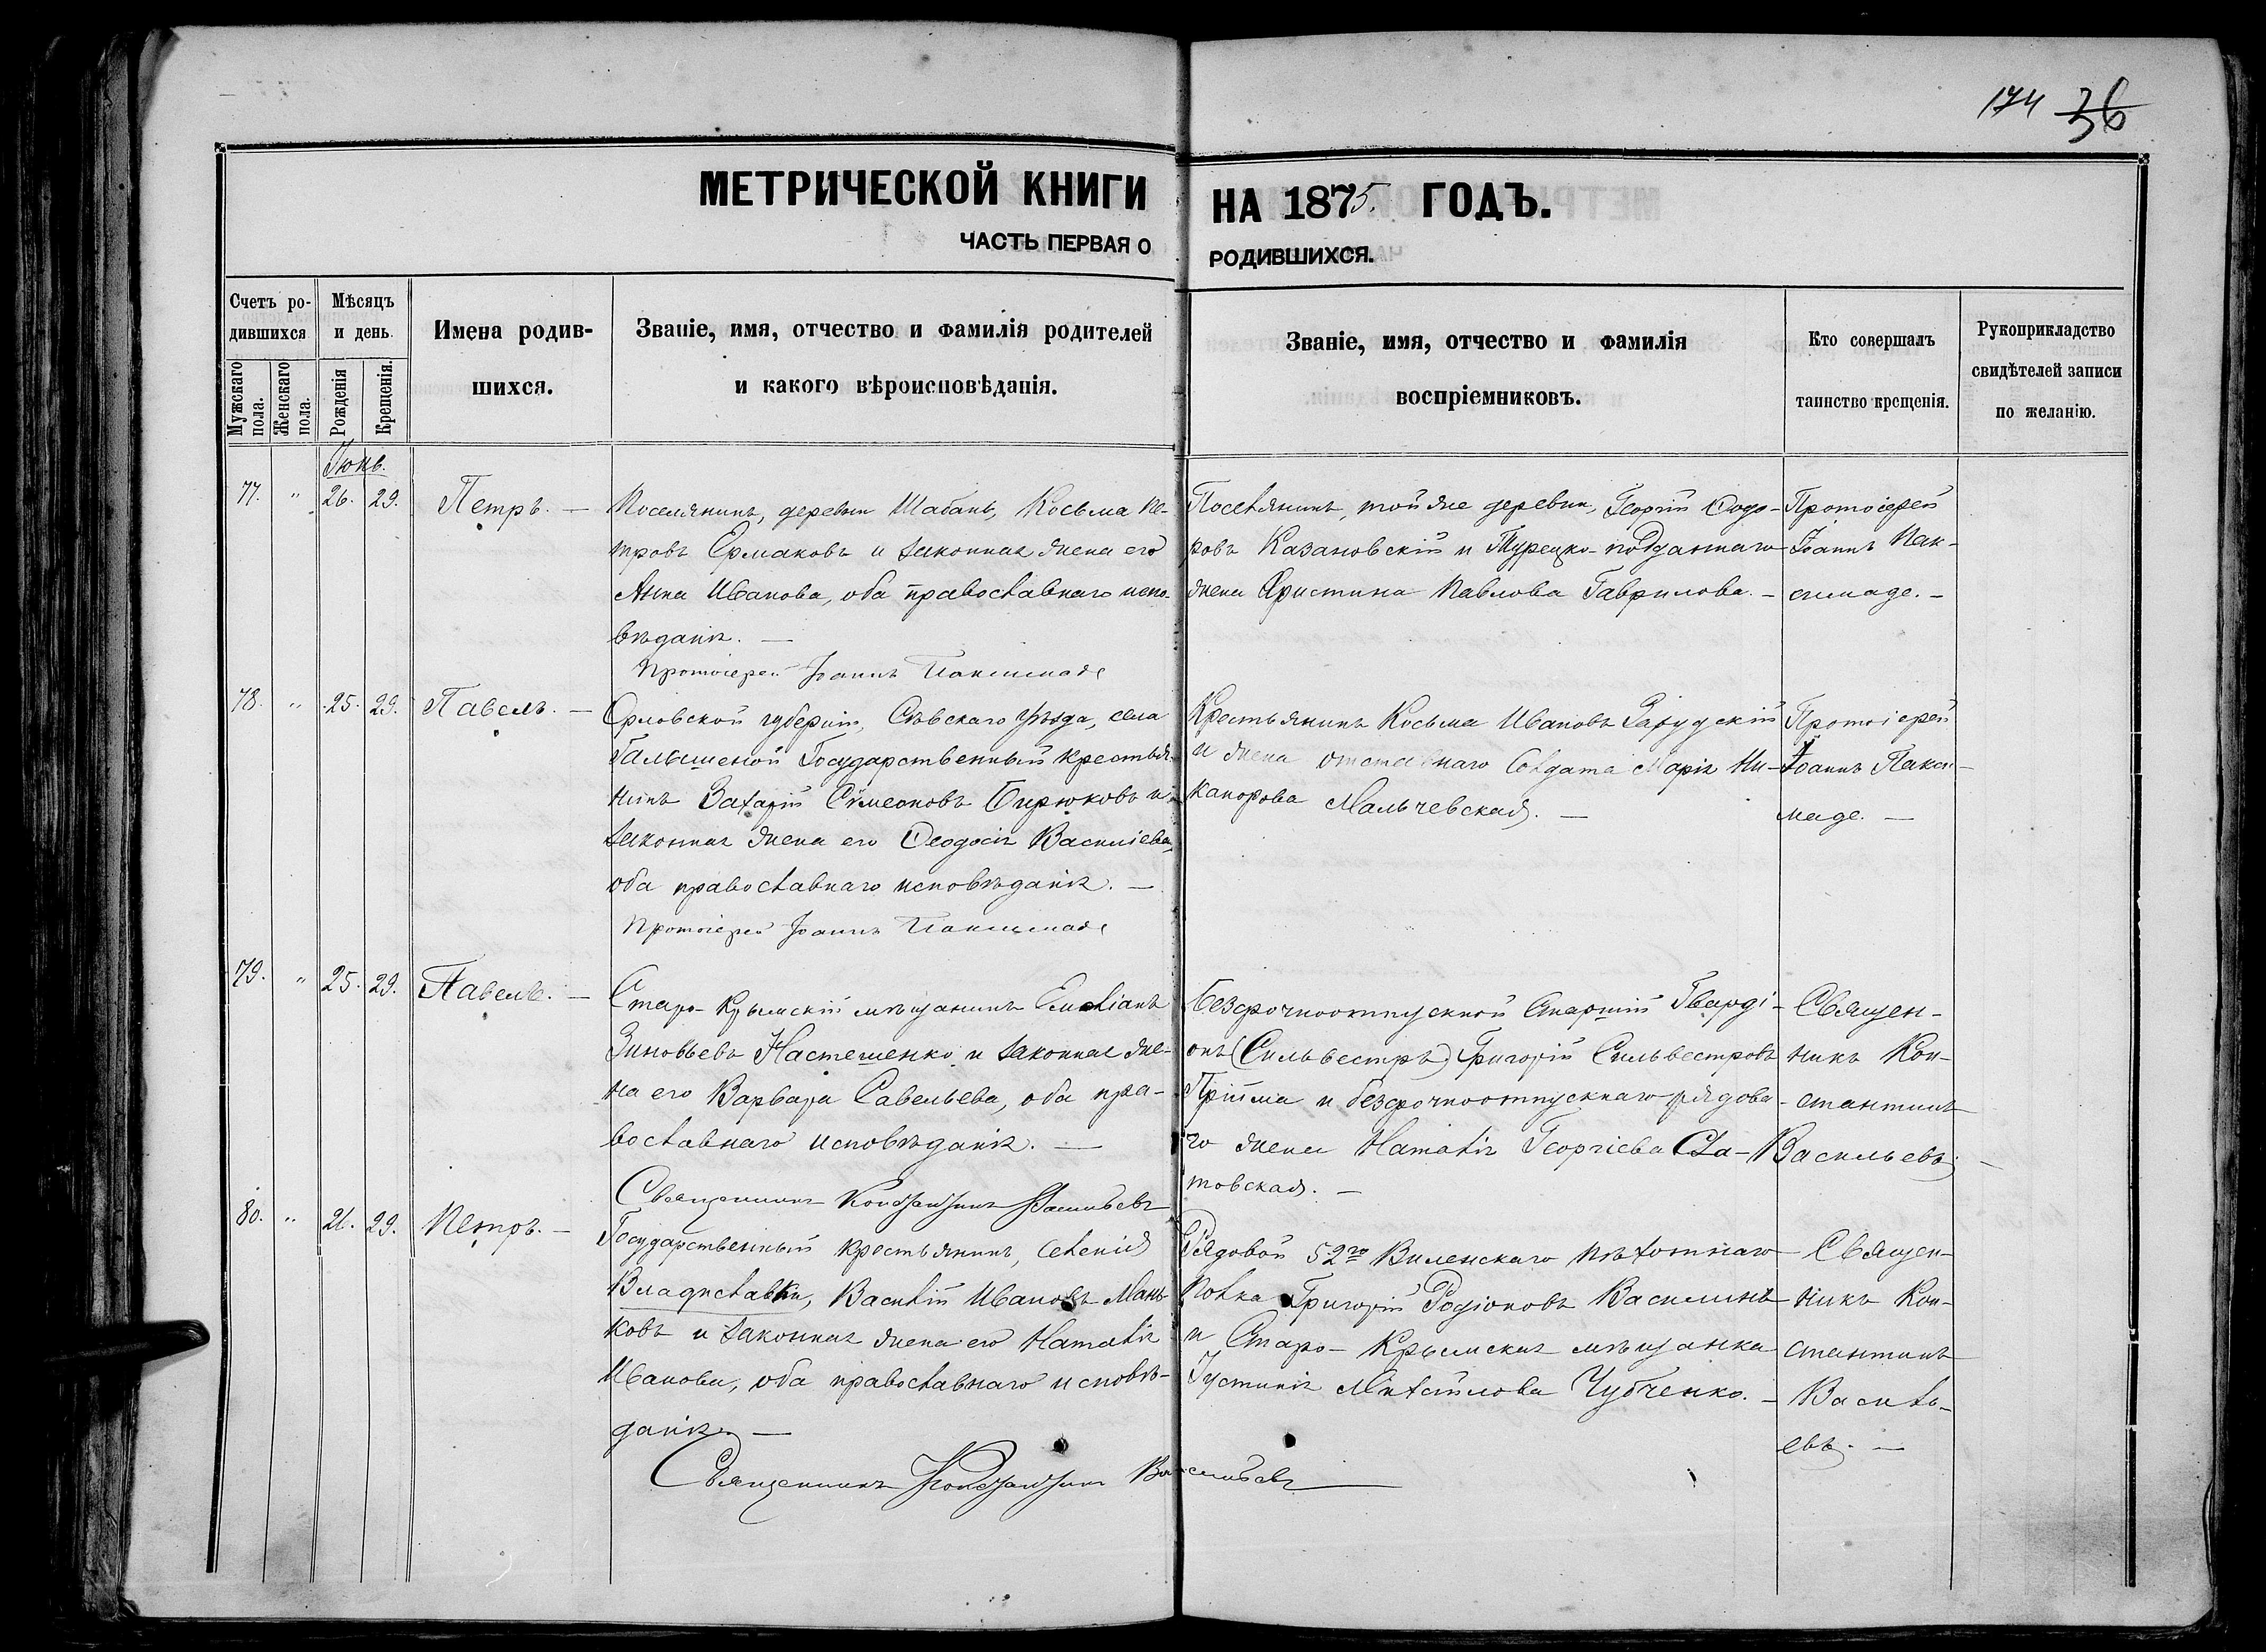 174 36
МЕТРИЧЕСКОЙ КНИГИ НА 1875. ГОДЪ.
ЧАСТЬ ПЕРВАЯ О РОДИВШИХСЯ.
Счетъ ро-
дившихся
Мужскаго пола.
Женскаго пола.
Мѣсяцъ
и день.
Рожденія
Крещенія.
Имена родив-
шихся.
Званіе, имя, отчество и фамилія родителей
и какого вѣроисповѣданія.
Званіе, имя, отчество и фамилія
воспріемниковъ.
Кто совершалъ
таинство крещенія.
Рукоприкладство
свидѣтелей записи
по желанію.
Іюнь.
77. " 26. 29. Петръ. —
Поселянинъ, деревни Шабань, Косьма Пе-
тровъ Ермаковъ и законная жена его
Анна Иванова, оба православнаго испо-
вѣданія. —
Протоіерей Іоаннъ Паксимаде
Поселянинъ, той же деревни, Георгій Ѳодо-
ровъ Казановскій и Турецко-подданнаго
жена Христина Павлова Гаврилова. —
Протоіерей
Іоаннъ Пак-
симаде. —
78. " 25. 29. Павелъ. —
Орловской губерніи, Сѣвскаго уѣзда, села
Государственный крестья-
нинъ Захарій Сѵмеоновъ Бирюковъ и
законная жена его Ѳеодосія Василіева,
оба православнаго исповѣданія. —
Протоіерей Іоаннъ Паксимаде
Крестьянинъ Косьма Ивановъ Зарудскій
и жена отставнаго Солдата Марія Ни-
канорова Мальчевская. —
Протоіерей
Іоаннъ Пакси-
маде. —
79. " 25. 29. Павелъ. —
Старо-Крымскій мѣщанинъ Емеліанъ
Зиновьевъ Настешенко и законная же-
на его Варвара Савельева, оба пра-
вославнаго исповѣданія. —
Священникъ Константинъ Васильевъ
Безсрочноотпускной Старшій Гварді-
онъ (Сильвестръ) Григорій Сильвестровъ
Прійма и безсрочноотпускнаго рядова-
го жена Наталія Георгіева Сла-
товская. —
Священ-
никъ Кон-
стантинъ
Васильевъ. —
80. " 26. 29. Петръ. —
Государственный крестьянинъ, селенія
Владиславки, Василій Ивановъ Мань-
ковъ и законная жена его Наталія
Иванова, оба православнаго исповѣ-
данія. —
Священникъ Константинъ Васильевъ
Рядовой 52го Виленскаго пѣхотнаго
Полка Григорій Родіоновъ Василинъ
и Старо-Крымская мѣщанка
Іустинія Михайлова Чубченко. —
Священ-
никъ Кон-
стантинъ
Василь-
евъ. —